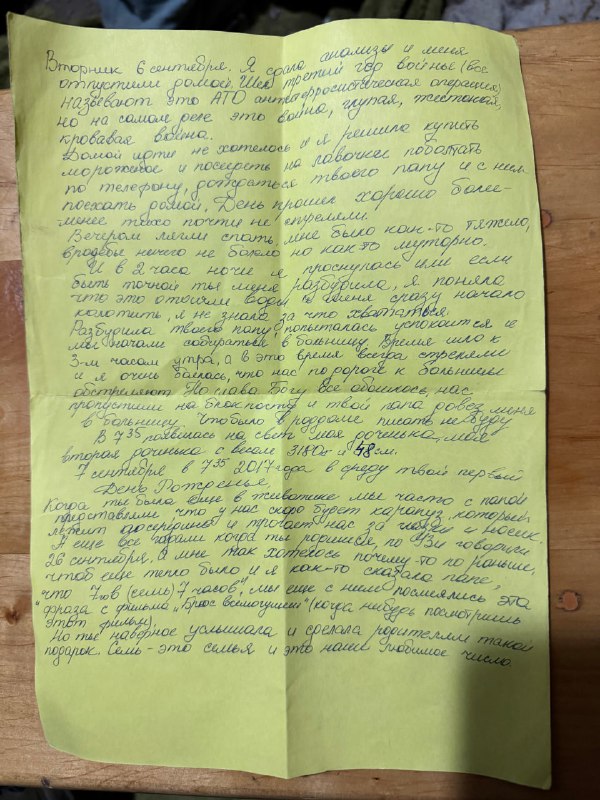 Вторник 6 сентября. Я сдала анализы и меня
отпустили домой. Шел третий год войны (все
называют это АТО антитеррористическая операция)
но на самом деле это война, глупая, жестокая,
кровавая война.
Домой идти не хотелось и я решила купить
мороженое и посидеть на лавочке поболтать
по телефону, дождаться твоего папу и с ним
поехать домой. День прошел хорошо более-
менее тихо почти не стреляли.
Вечером легли спать, мне было как-то тяжело,
вродебы ничего не болело но как то муторно.
И в 2 часа ночи я проснулась или если
быть точной ты меня разбудила, я поняла
что это отошли воды и меня сразу начало
колотить, я не знала за что хвататься
Разбудила твоего папу, попыталась успокоится и
мы начали собираться в больницу. Время шло к
3-м часам утра, а в это время всегда стреляли
и я очень боялась, что нас по дороге к больнице
обстреляют. Но слава Богу все обошлось, нас
пропустили на блокпосту и твой папа довез меня
в больницу. Что было в роддоме писать не буду
В 7 35 появилась на свет моя доченька, моя
вторая доченька с весом 3180г и 48 см.
7 сентября в 7 35 2017 года в среду твой первый
День Рождения.
Когда ты была еще в животике мы часто с папой
представляли что у нас скоро будет карапуз, который
лежит посередине и трогает нас за носик.
А еще все гадали когда ты родишся, по УЗИ говорили
26 сентября. А мне так хотелось почему-то по раньше,
чтоб еще тепло было и я как-то сказала папе,
"что 7ов (семь) 7 часов", мы еще с ним посмеялись эта
фраза с фильма "Брюс всемогущий" (когда нибудь посмотришь
этот фильм).
Но ты наверное услышала и сделала родителям такой
подарок. Семь - это семья и это наше любимое число.